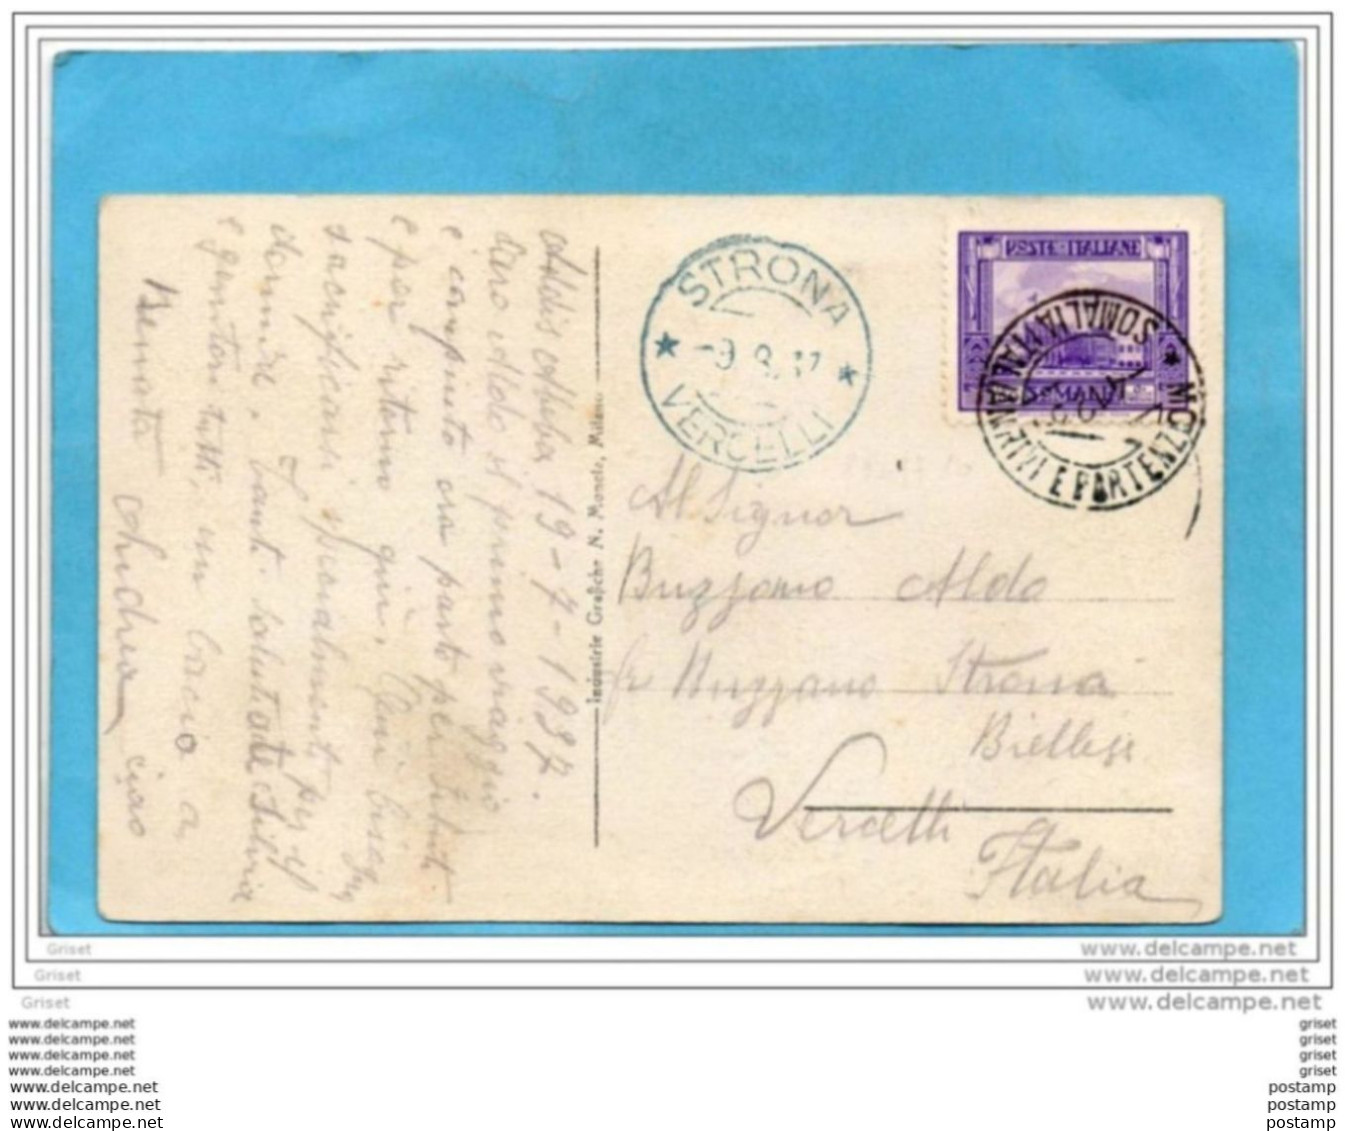 Addis Abeba 19-7-1937.
Caro Aldo il primo viaggio
è compiuto ora parto per
e per ritorno qui.
sacrificarsi specialmente per il
dormire. Tanti saluti a te Silvia
e genitori tutti, un bacio a
Renata Andrea ciao
Industrie Grafiche N. Moneta, Milano
STRONA
-9.8.37
VERCELLI
POSTE ITALIANE
SOMALIA
SOMALIA ITALIANA
ARRIVI E PARTENZE
Al Signor
Buzzano Aldo
fr Buzzano Strona
Biellese
Vercelli
Italia
Griset
Griset
Griset
www.delcampe.net
www.delcampe.net
www.delcampe.net
www.delcampe.net
www.delcampe.net
www.delcampe.net
www.delcampe.net
www.delcampe.net
www.delcampe.net
www.delcampe.net
griset
griset
griset
griset
postamp
postamp
postamp